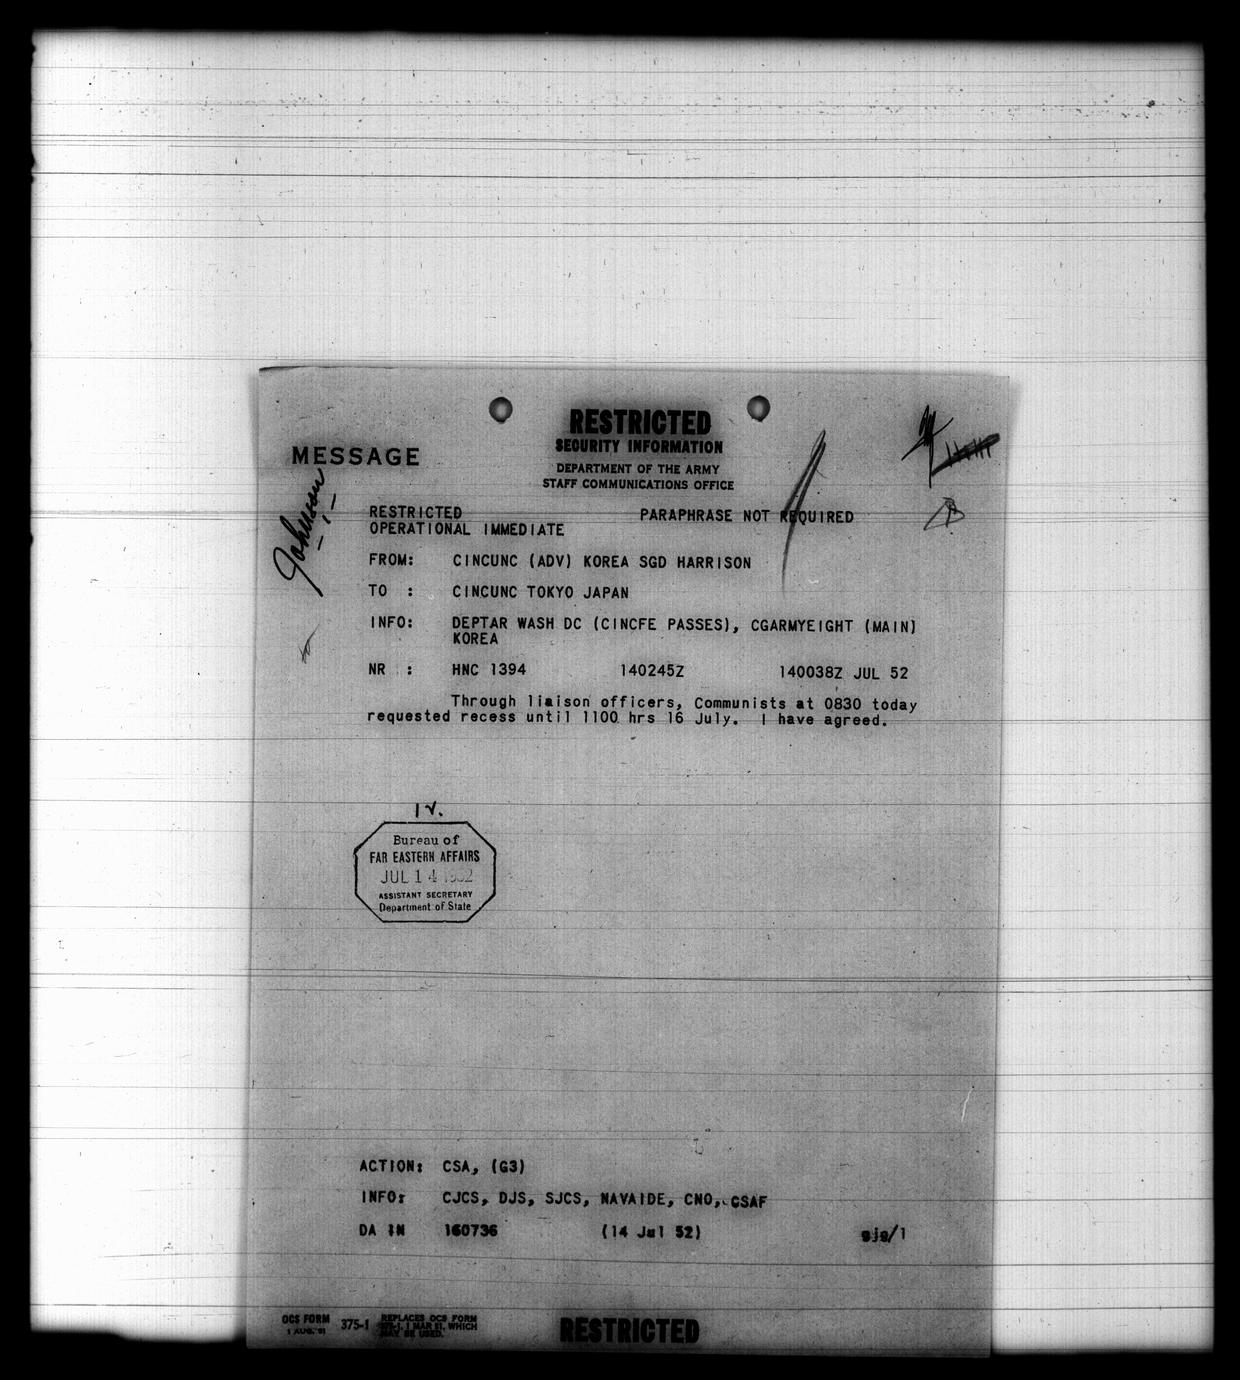 RESTRICTED
SECURITY INFORMATION
MESSAGE
DEPARTMENT OF THE ARMY
STAFF COMMUNICATIONS OFFICE
Johnson
RESTRICTED PARAPHRASE NOT REQUIRED
OPERATIONAL IMMEDIATE
FROM: CINCUNC (ADV) KOREA SGD HARRISON
TO : CINCUNC TOKYO JAPAN
INFO: DEPTAR WASH DC (CINCFE PASSES), CGARMYEIGHT (MAIN)
KOREA
NR : HNC 1394 140245Z 140038Z JUL 52
Through liaison officers, Communists at 0830 today
requested recess until 1100 hrs 16 July. I have agreed.
Bureau of
FAR EASTERN AFFAIRS
JUL 14 1952
ASSISTANT SECRETARY
Department of State
ACTION: CSA, (G3)
INFO: CJCS, DJS, SJCS, NAVAIDE, CNO, CSAF
DA IN 160736 (14 Jul 52) sjs/1
OCS FORM 375-1 REPLACES OCS FORM
1 AUG. 51 375-1, 1 MAR 51, WHICH
MAY BE USED.
RESTRICTED